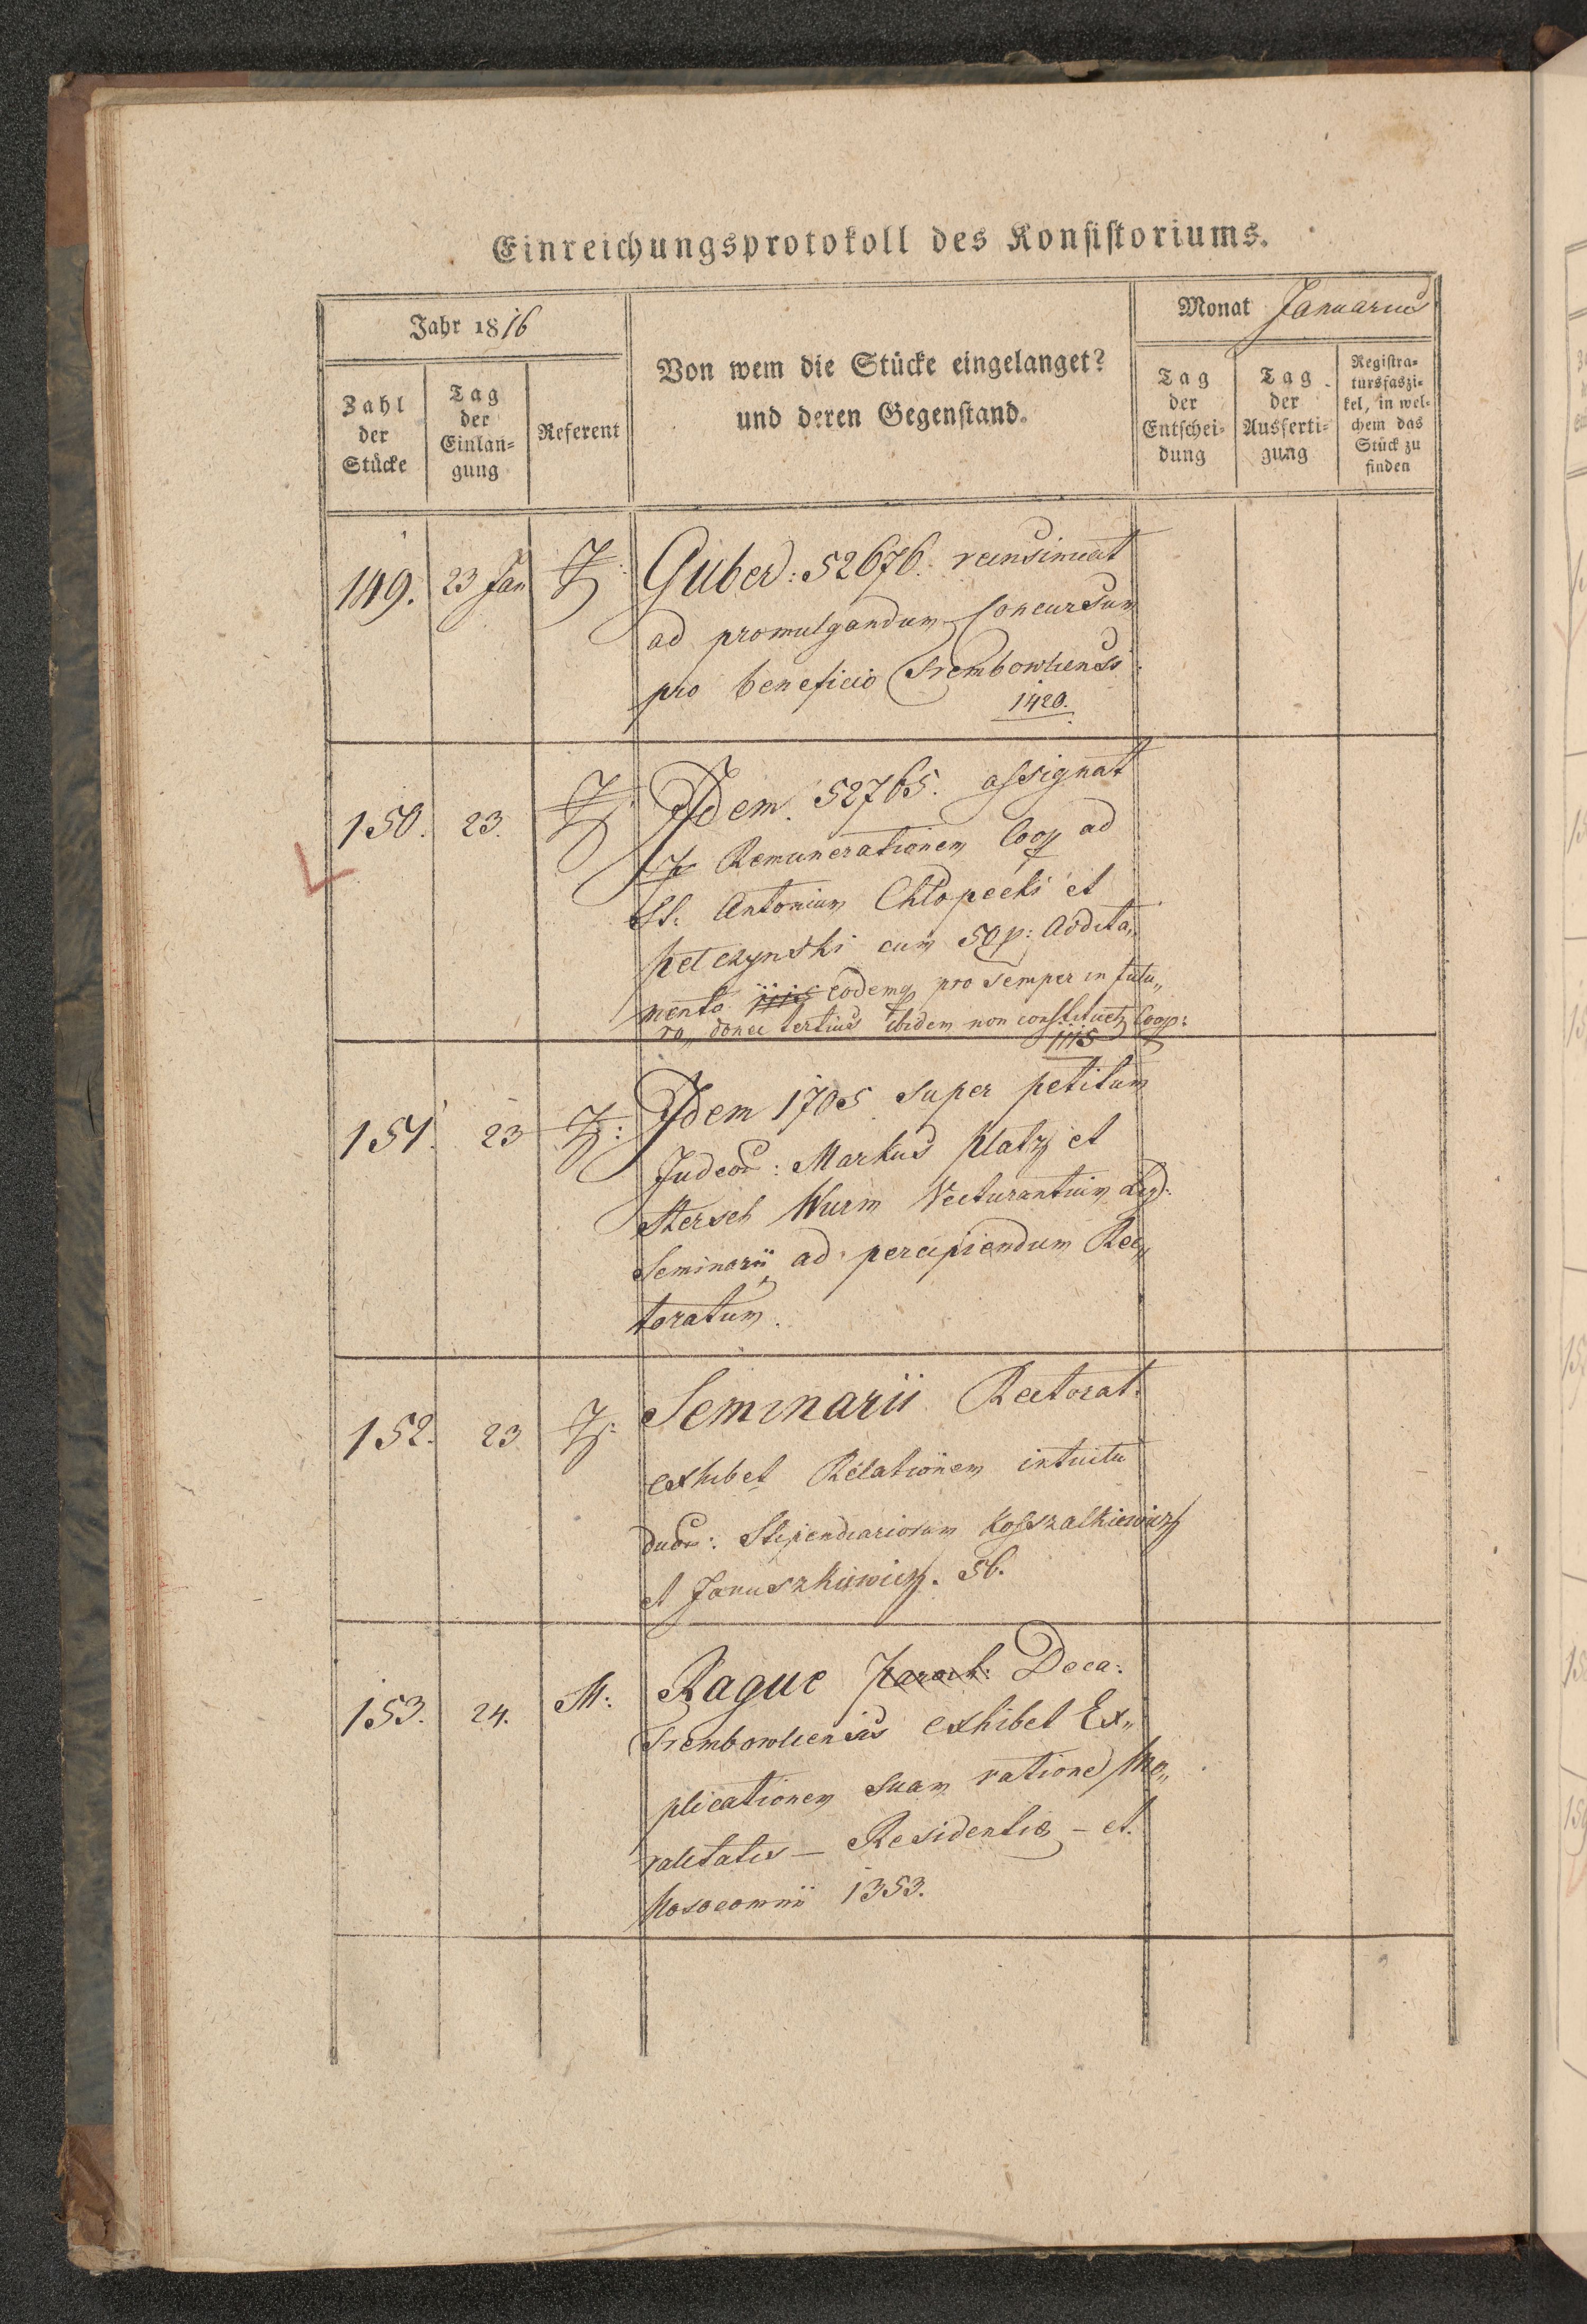 Einreichungsprotokoll des Konsistoriums.
Jahr 1816
Von wem die Stücke eingelanget?
und deren Gegenstand.
Monat Januarius
Zahl
der
Stücke
Tag
der
Einlan-
gung
Referent
Tag
der
Entschei-
dung
Tag
der
Ausferti-
gung
Registra-
tursfaszi-
kel, in wel-
chem das
Stück zu
finden
149. 23 Jan Guber: 52676. reinsinuat
ad promulgandum Concursum
pro beneficio Trembowliensi
1420.
150. 23. Idem 52765. assignat
Remunerationem Coop ad
St. Antonium Chłopecki et
Pelczynski cum 50 f: Addita„
mento eodemq pro semper in futu„
ro, donec tertius ibidem non constituetz Coop:
1115
151. 23 Idem 1705 super petitum
Judeor: Markus Platz et
Hersch Wurm Vecturantium Lig:
Seminarii ad percipiendum Rec„
toratum.
152. 23 Seminarii Rectorat.
exhibet Relationem intuitu
duor: Stipendiariorum Kosszalkiewicz
et Januszkiewicz. 56.
153. 24. M: Rague Paroch: Deca:
Trembowliensis exhibet Ex„
plicationem suam ratione Mo„
ralitatis – Residentiæ – et
Nosocomii 1353.